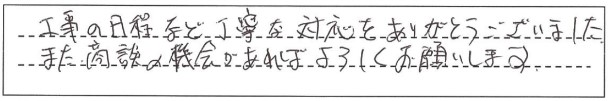 工事の日程など丁寧な対応をありがとうございました
また商談の機会があればよろしくお願いします。